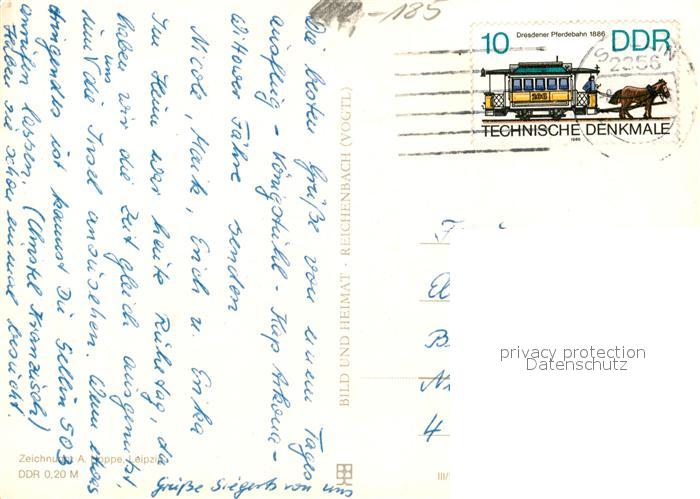 Die besten Grüße von einem Tages
ausflug - Königstuhl - Kap Arkona -
Wittower Fähre senden
Nicole, Maik, Erich u. Erika
Im Heim war heute Ruhetag, da
haben wir die Zeit gleich ausgenutzt
uns
die Insel anzusehen. Wenn etwas
dringendes ist kannst Du Sellin 503
anrufen lassen. (Christel Franzisch)
Haben sie schon einmal besucht.
Grüße Siegerts von uns
BILD UND HEIMAT · REICHENBACH (VOGTL)
Zeichnung: A. Hoppe, Leipzig
DDR 0,20 M
III/
-185
10
Dresdener Pferdebahn 1886
DDR
TECHNISCHE DENKMALE
1986
2356
4
privacy protection
Datenschutz